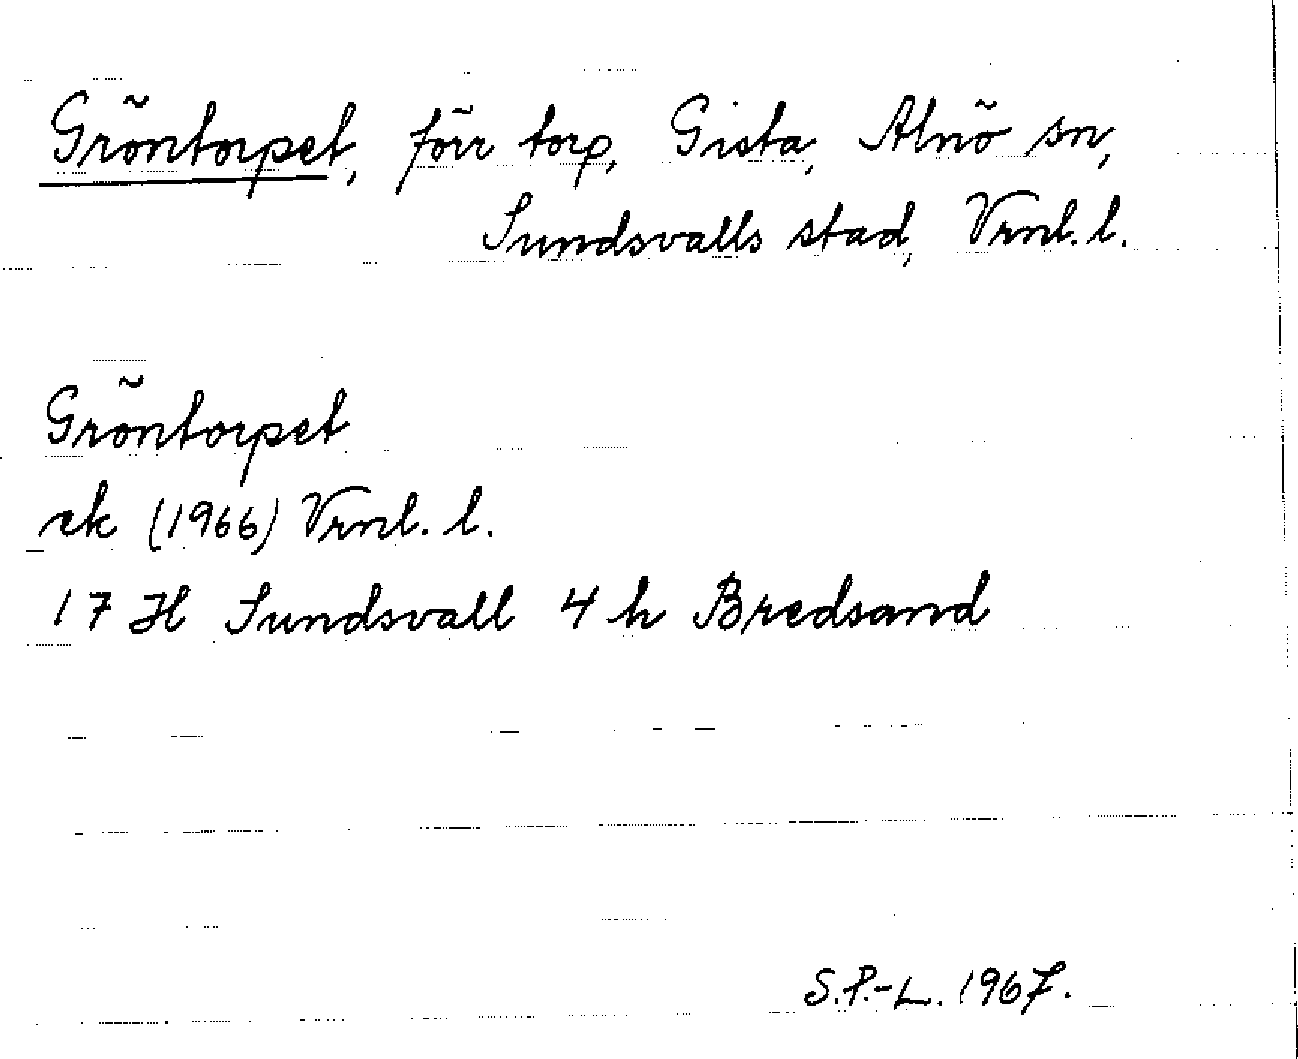 Gröntorpet, förr torp, Gista, Alnö sn,
Sundsvalls stad, Vrnl. l.
Gröntorpet
ek (1966) Vrnl. l.
17 H Sundsvall 4 h Bredsand
S.P.-L. 1967.